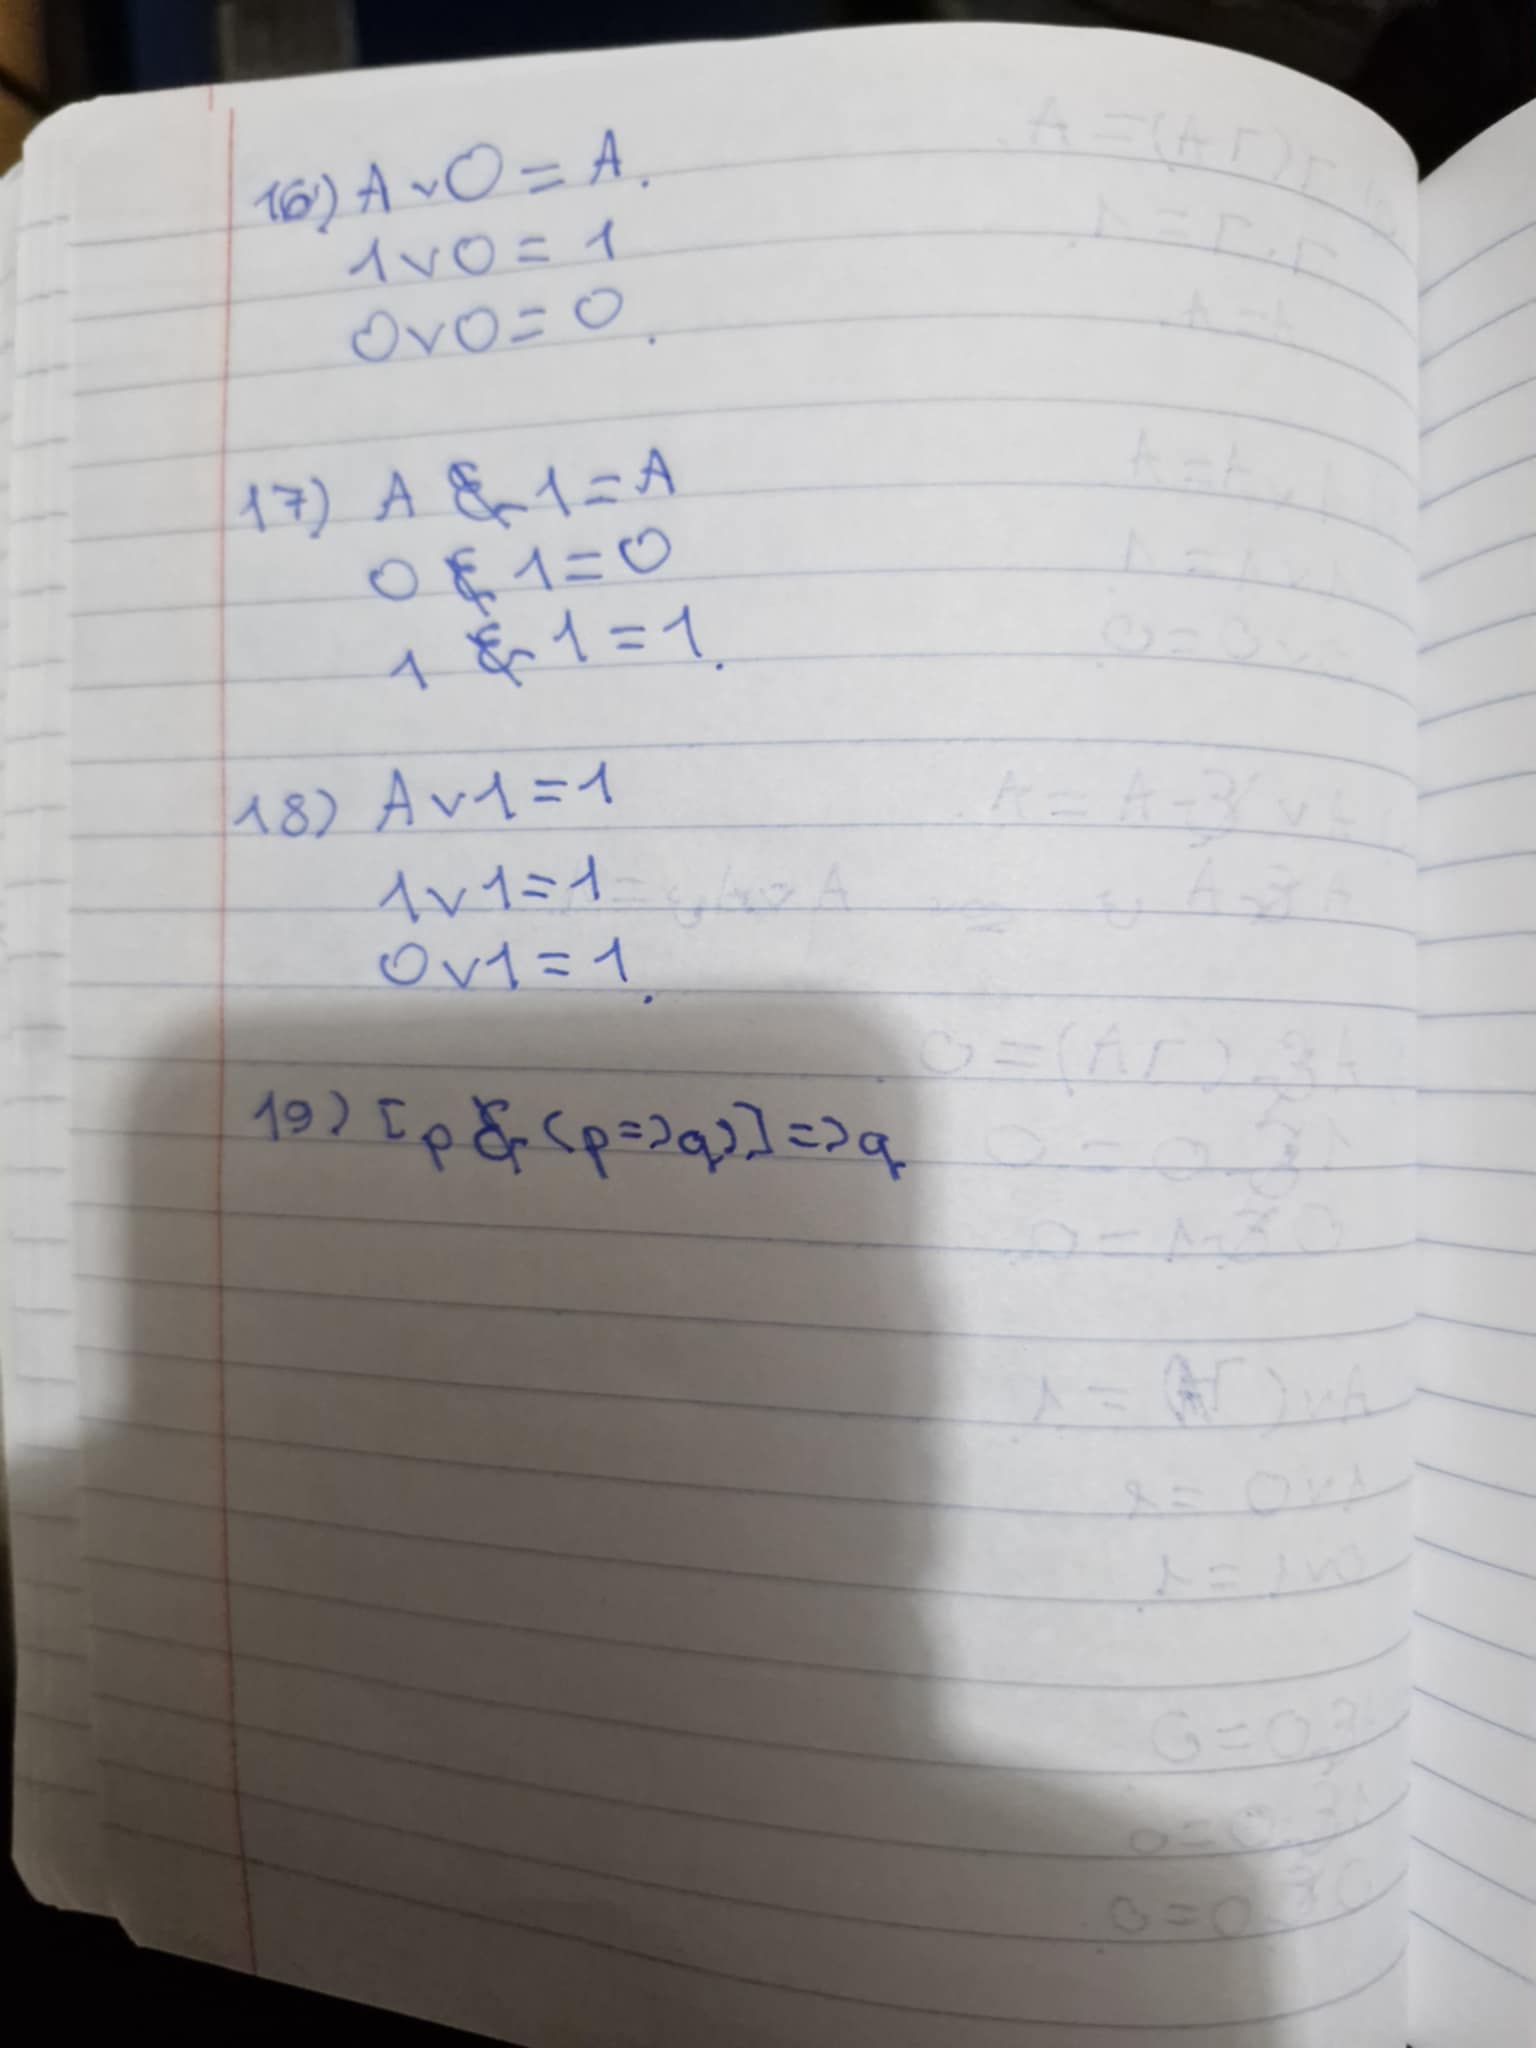 16) A v 0 = A.
1 v 0 = 1
0 v 0 = 0.
17) A & 1 = A
0 & 1 = 0
1 & 1 = 1.
18) A v 1 = 1
1 v 1 = 1
0 v 1 = 1.
19) [p & (p => q)] => q